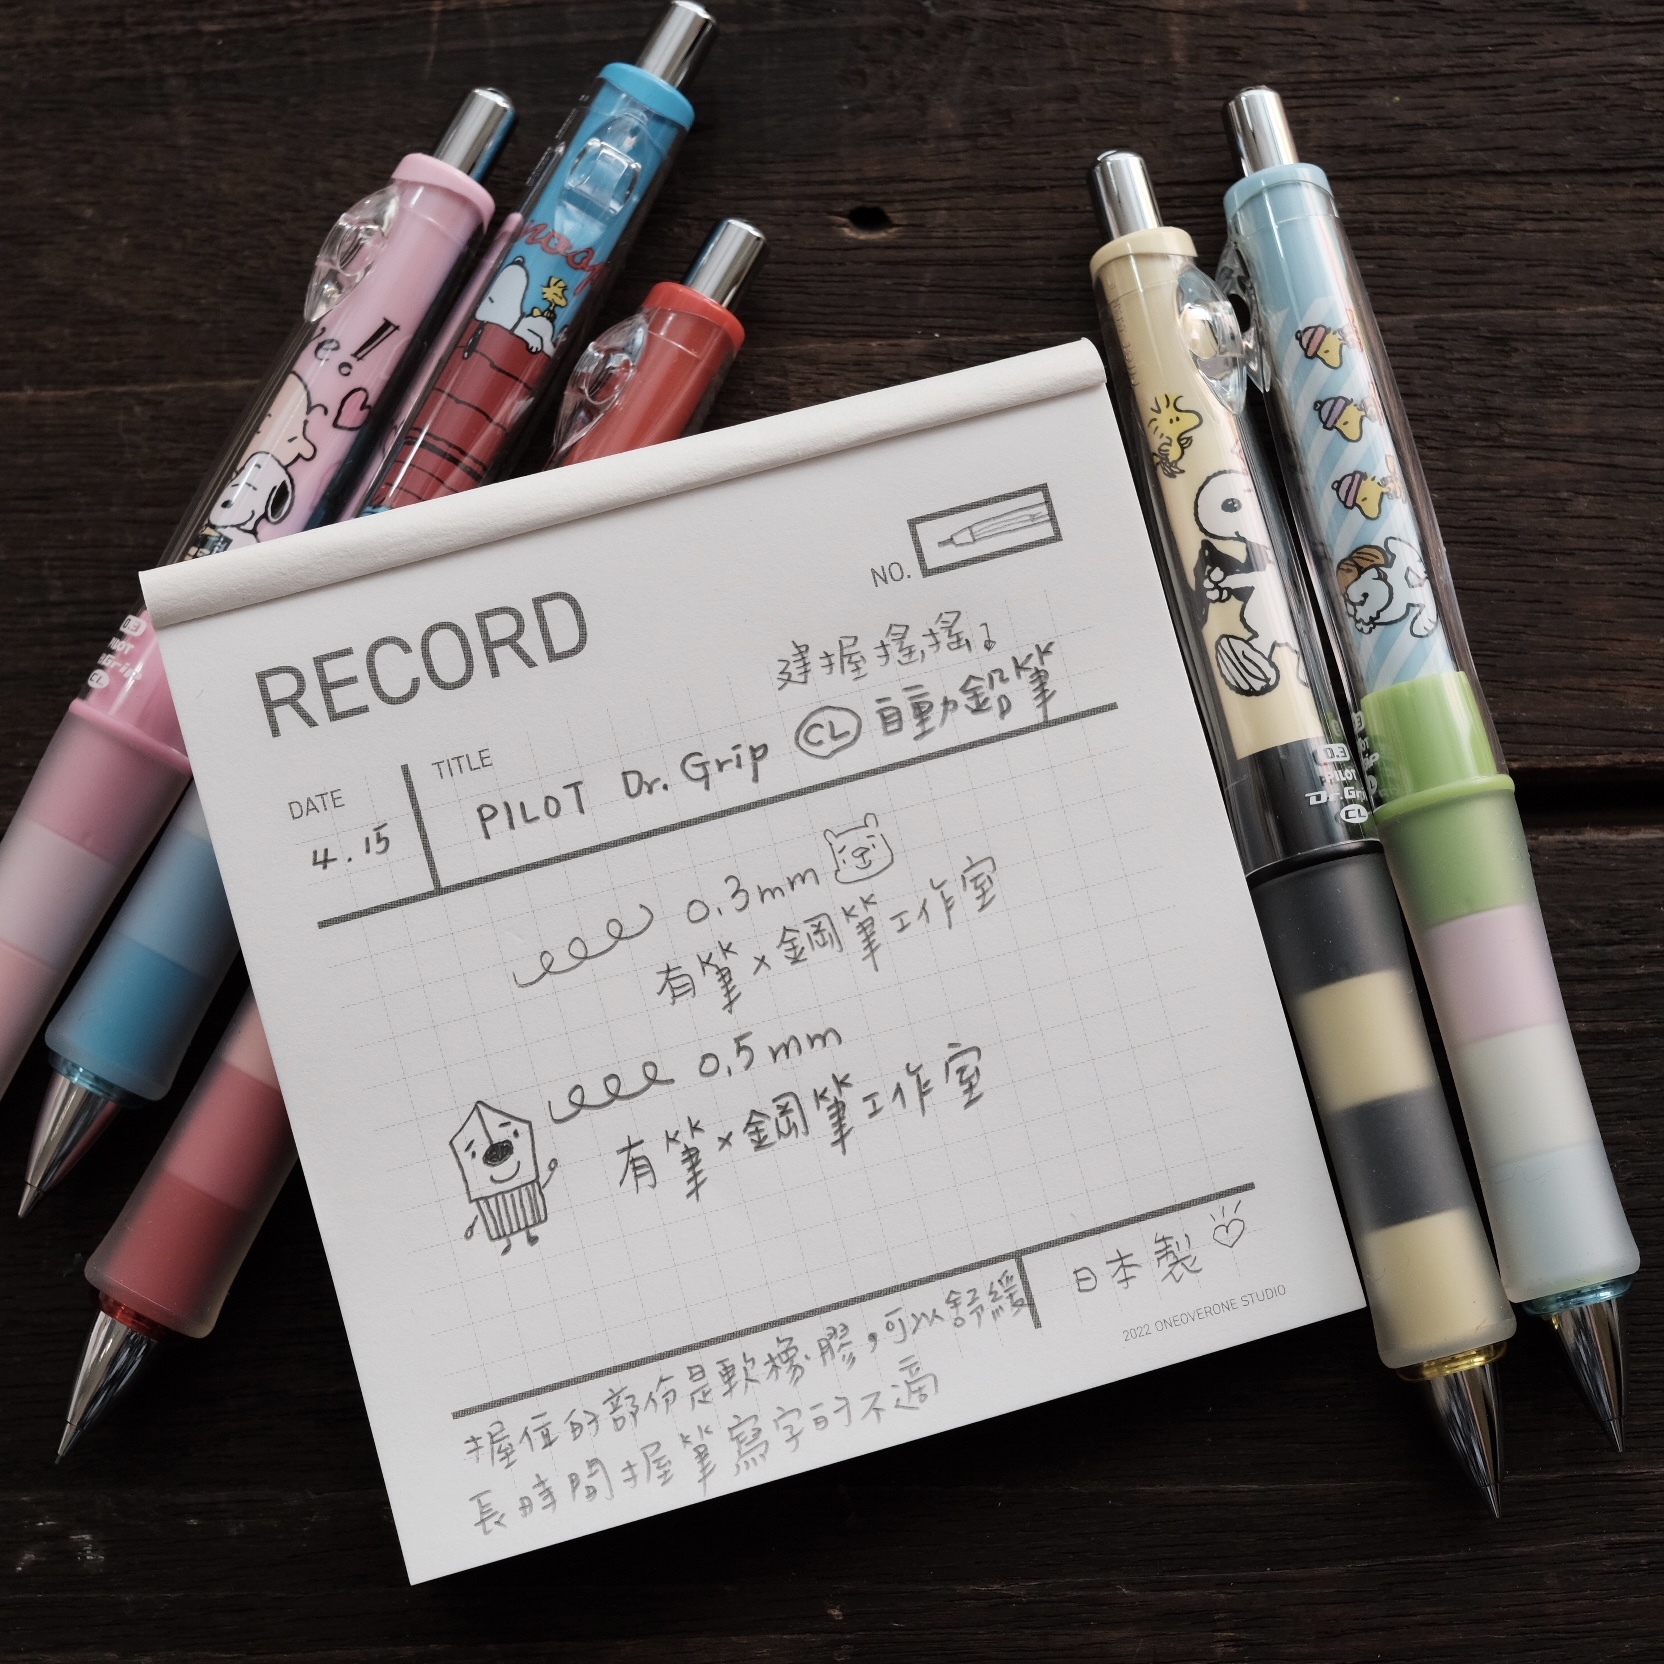 e!
Snoopy
NO.
RECORD
健握搖搖
DATE
TITLE
4.15
PILOT Dr. Grip CL 自動鉛筆
0.3mm
有筆×鋼筆工作室
0.5mm
有筆×鋼筆工作室
日本製
2022 ONEOVERONE STUDIO
握位的部份是軟橡膠,可以舒緩
長時間握筆寫字的不適
0.3
PILOT
Dr.Grip
CL
0.3
PILOT
Dr.Grip
CL